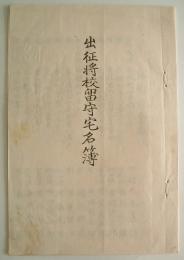 出征將校留守宅名簿